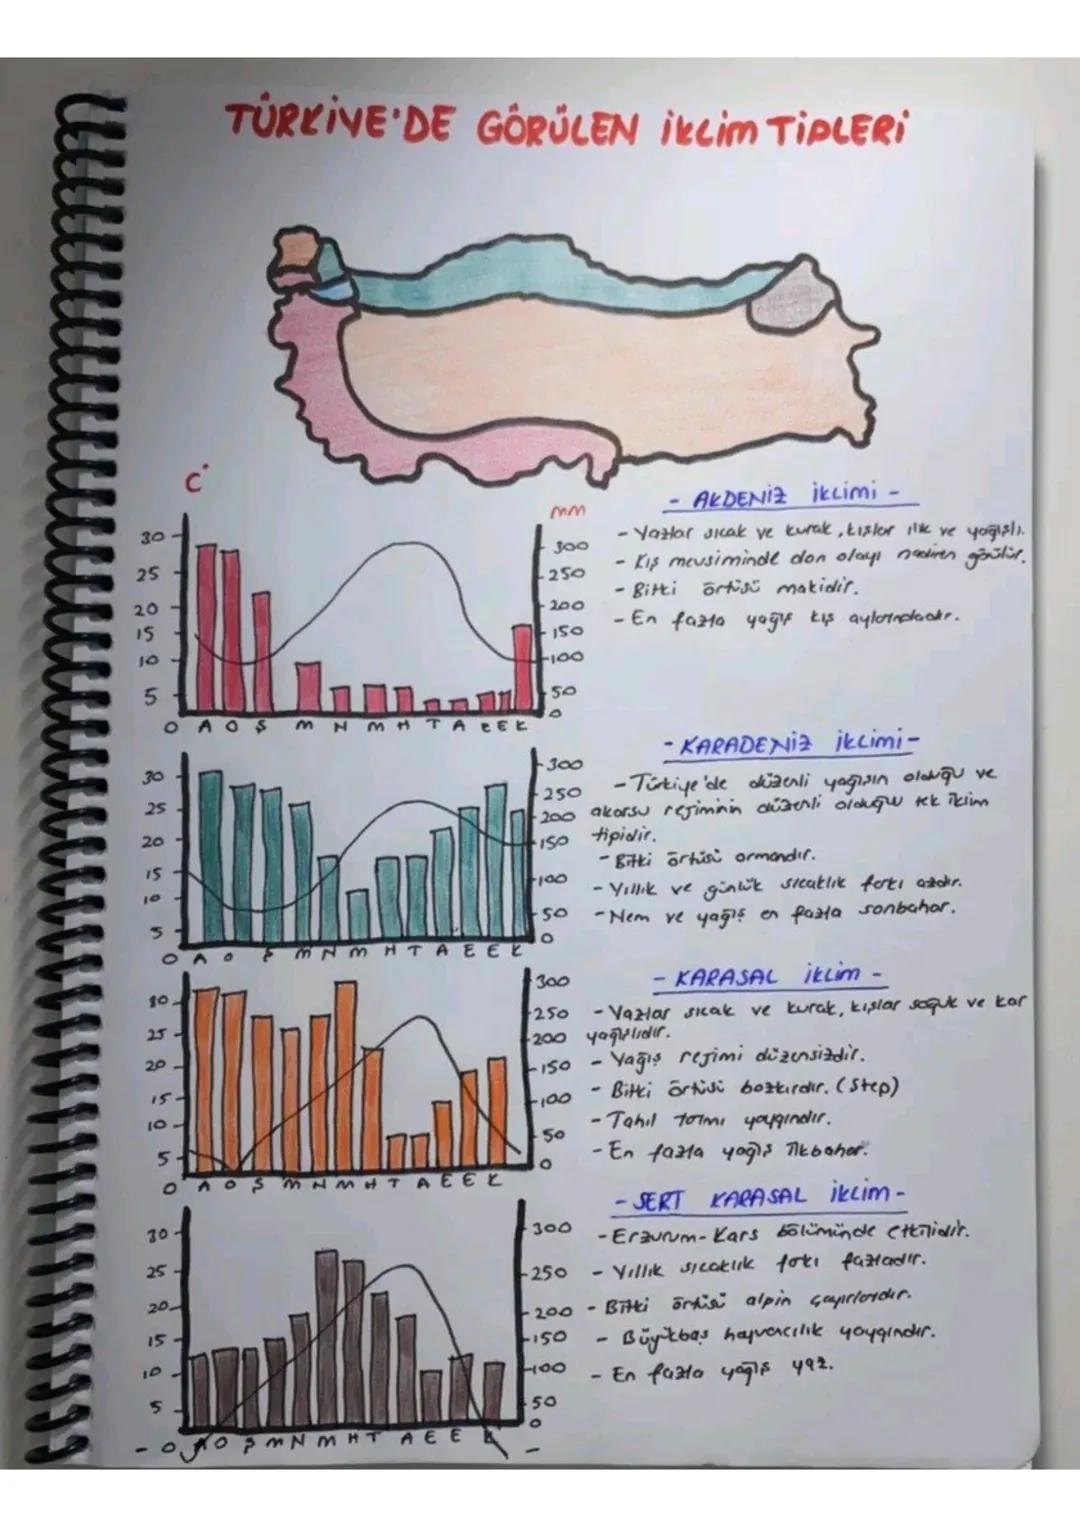 TÜRKİYE'DE GÖRÜLEN İKLİM TİPLERİ
C°
mm
30
25
20
15
10
5
O
300
250
200
150
100
50
0
A O Ş M N M H T A E E K
- AKDENİZ İKLİMİ -
- Yazlar sıcak ve kurak, kışlar ılık ve yağışlı.
- Kış mevsiminde don olayı nadiren görülür.
- Bitki örtüsü makidir.
- En fazla yağış kış aylarındadır.
30
25
20
15
10
5
O
300
250
200
150
100
50
0
A O Ş M N M H T A E E K
- KARADENİZ İKLİMİ -
- Türkiye'de düzenli yağışın olduğu ve
akarsu rejiminin düzenli olduğu tek iklim
tipidir.
- Bitki örtüsü ormandır.
- Yıllık ve günlük sıcaklık farkı azdır.
- Nem ve yağış en fazla sonbahar.
30
25
20
15
10
5
O
300
250
200
150
100
50
0
A O Ş M N M H T A E E K
- KARASAL İKLİM -
- Yazlar sıcak ve kurak, kışlar soğuk ve kar
yağışlıdır.
- Yağış rejimi düzensizdir.
- Bitki örtüsü bozkırdır. (Step)
- Tahıl tarımı yaygındır.
- En fazla yağış ilkbahar.
30
25
20
15
10
5
- O
300
250
200
150
100
50
0
-
A O Ş M N M H T A E E K
- SERT KARASAL İKLİM -
- Erzurum-Kars bölümünde etkilidir.
- Yıllık sıcaklık farkı fazladır.
- Bitki örtüsü alpin çayırlardır.
- Büyükbaş hayvancılık yaygındır.
- En fazla yağış yaz.